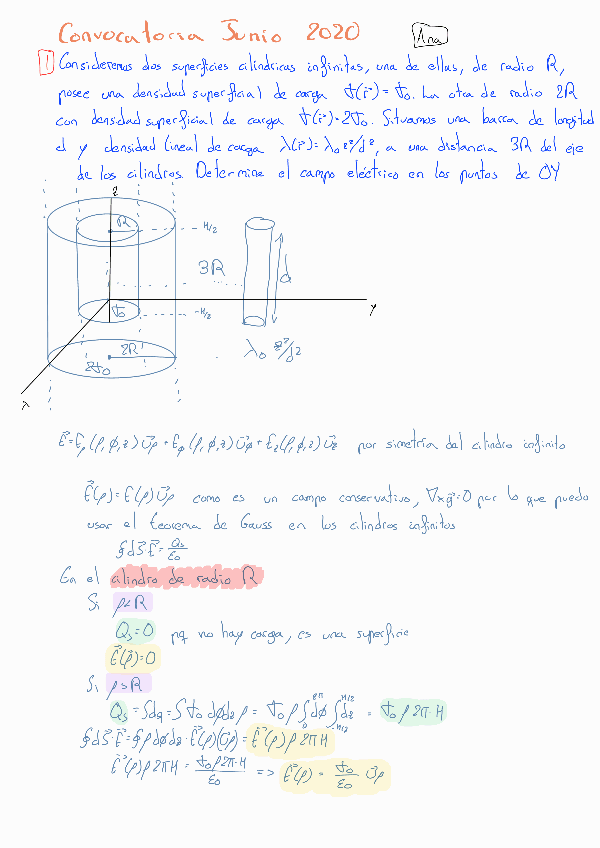 Convocatoria Junio 2020
Ana
1 Consideremos dos superficies cilíndricas infinitas, una de ellas, de radio R,
posee una densidad superficial de carga σ(r⃗) = σ₀. La otra de radio 2R
con densidad superficial de carga σ(r⃗) = 2σ₀. Situamos una barra de longitud
d y densidad lineal de carga λ(r⃗) = λ₀ z²/d², a una distancia 3R del eje
de los cilindros. Determine el campo eléctrico en los puntos de OY
z
R
H/2
3R
d
σ₀
-H/2
y
2R
2σ₀
λ₀ z²/d²
x
E⃗ = Eρ(ρ,ϕ,z) u⃗ρ + Eϕ(ρ,ϕ,z) u⃗ϕ + Ez(ρ,ϕ,z) u⃗z por simetría del cilindro infinito
E⃗(ρ) = E(ρ) u⃗ρ como es un campo conservativo, ∇×g⃗=0 por lo que puedo
usar el teorema de Gauss en los cilindros infinitos
∮dS⃗·E⃗ = Qs/ε₀
En el cilindro de radio R
Si ρ<R
Qs = 0 pq no hay carga, es una superficie
E⃗(ρ⃗) = 0
Si ρ>R
Qs = ∫dq = ∫σ₀ dϕdz ρ = σ₀ ρ ∫₀^2π dϕ ∫_-H/2^H/2 dz = σ₀ ρ 2π·H
∮dS⃗·E⃗ = ∮ρ dϕdz·E⃗(ρ)(u⃗ρ) = E⃗(ρ) ρ 2πH
E⃗(ρ) ρ 2πH = σ₀ρ2π·H/ε₀ => E⃗(ρ) = σ₀/ε₀ u⃗ρ